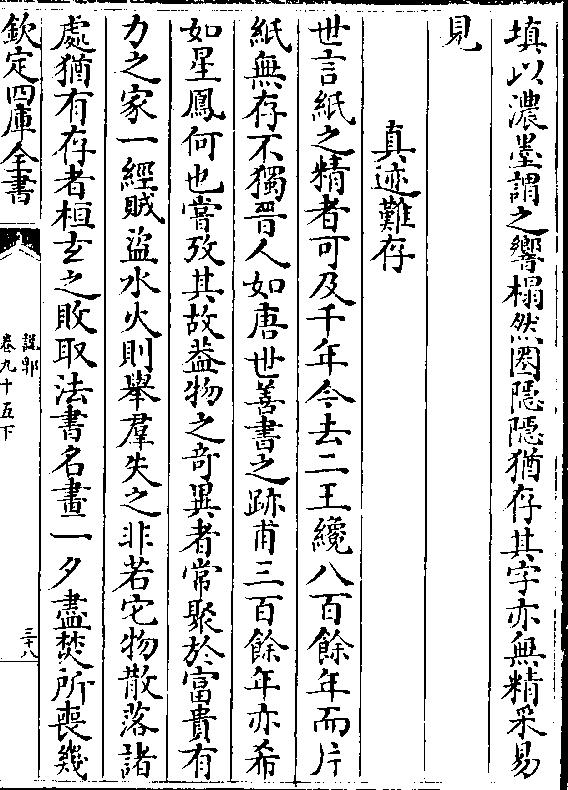 填以濃墨謂之響榻然圏隱隱猶存其字亦無精采易
見
真迹難存
世言紙之精者可及千年今去二王纔八百餘年而片
紙無存不獨晉人如唐世善書之跡甫三百餘年亦希
如星鳳何也嘗攷其故葢物之竒異者常聚於富貴有
力之家一經賊盜水火則舉羣失之非若它物散落諸
處猶有存者桓玄之敗取法書名畫一夕盡焚所喪幾
欽定四庫全書
說郛
卷九十五下
三十八